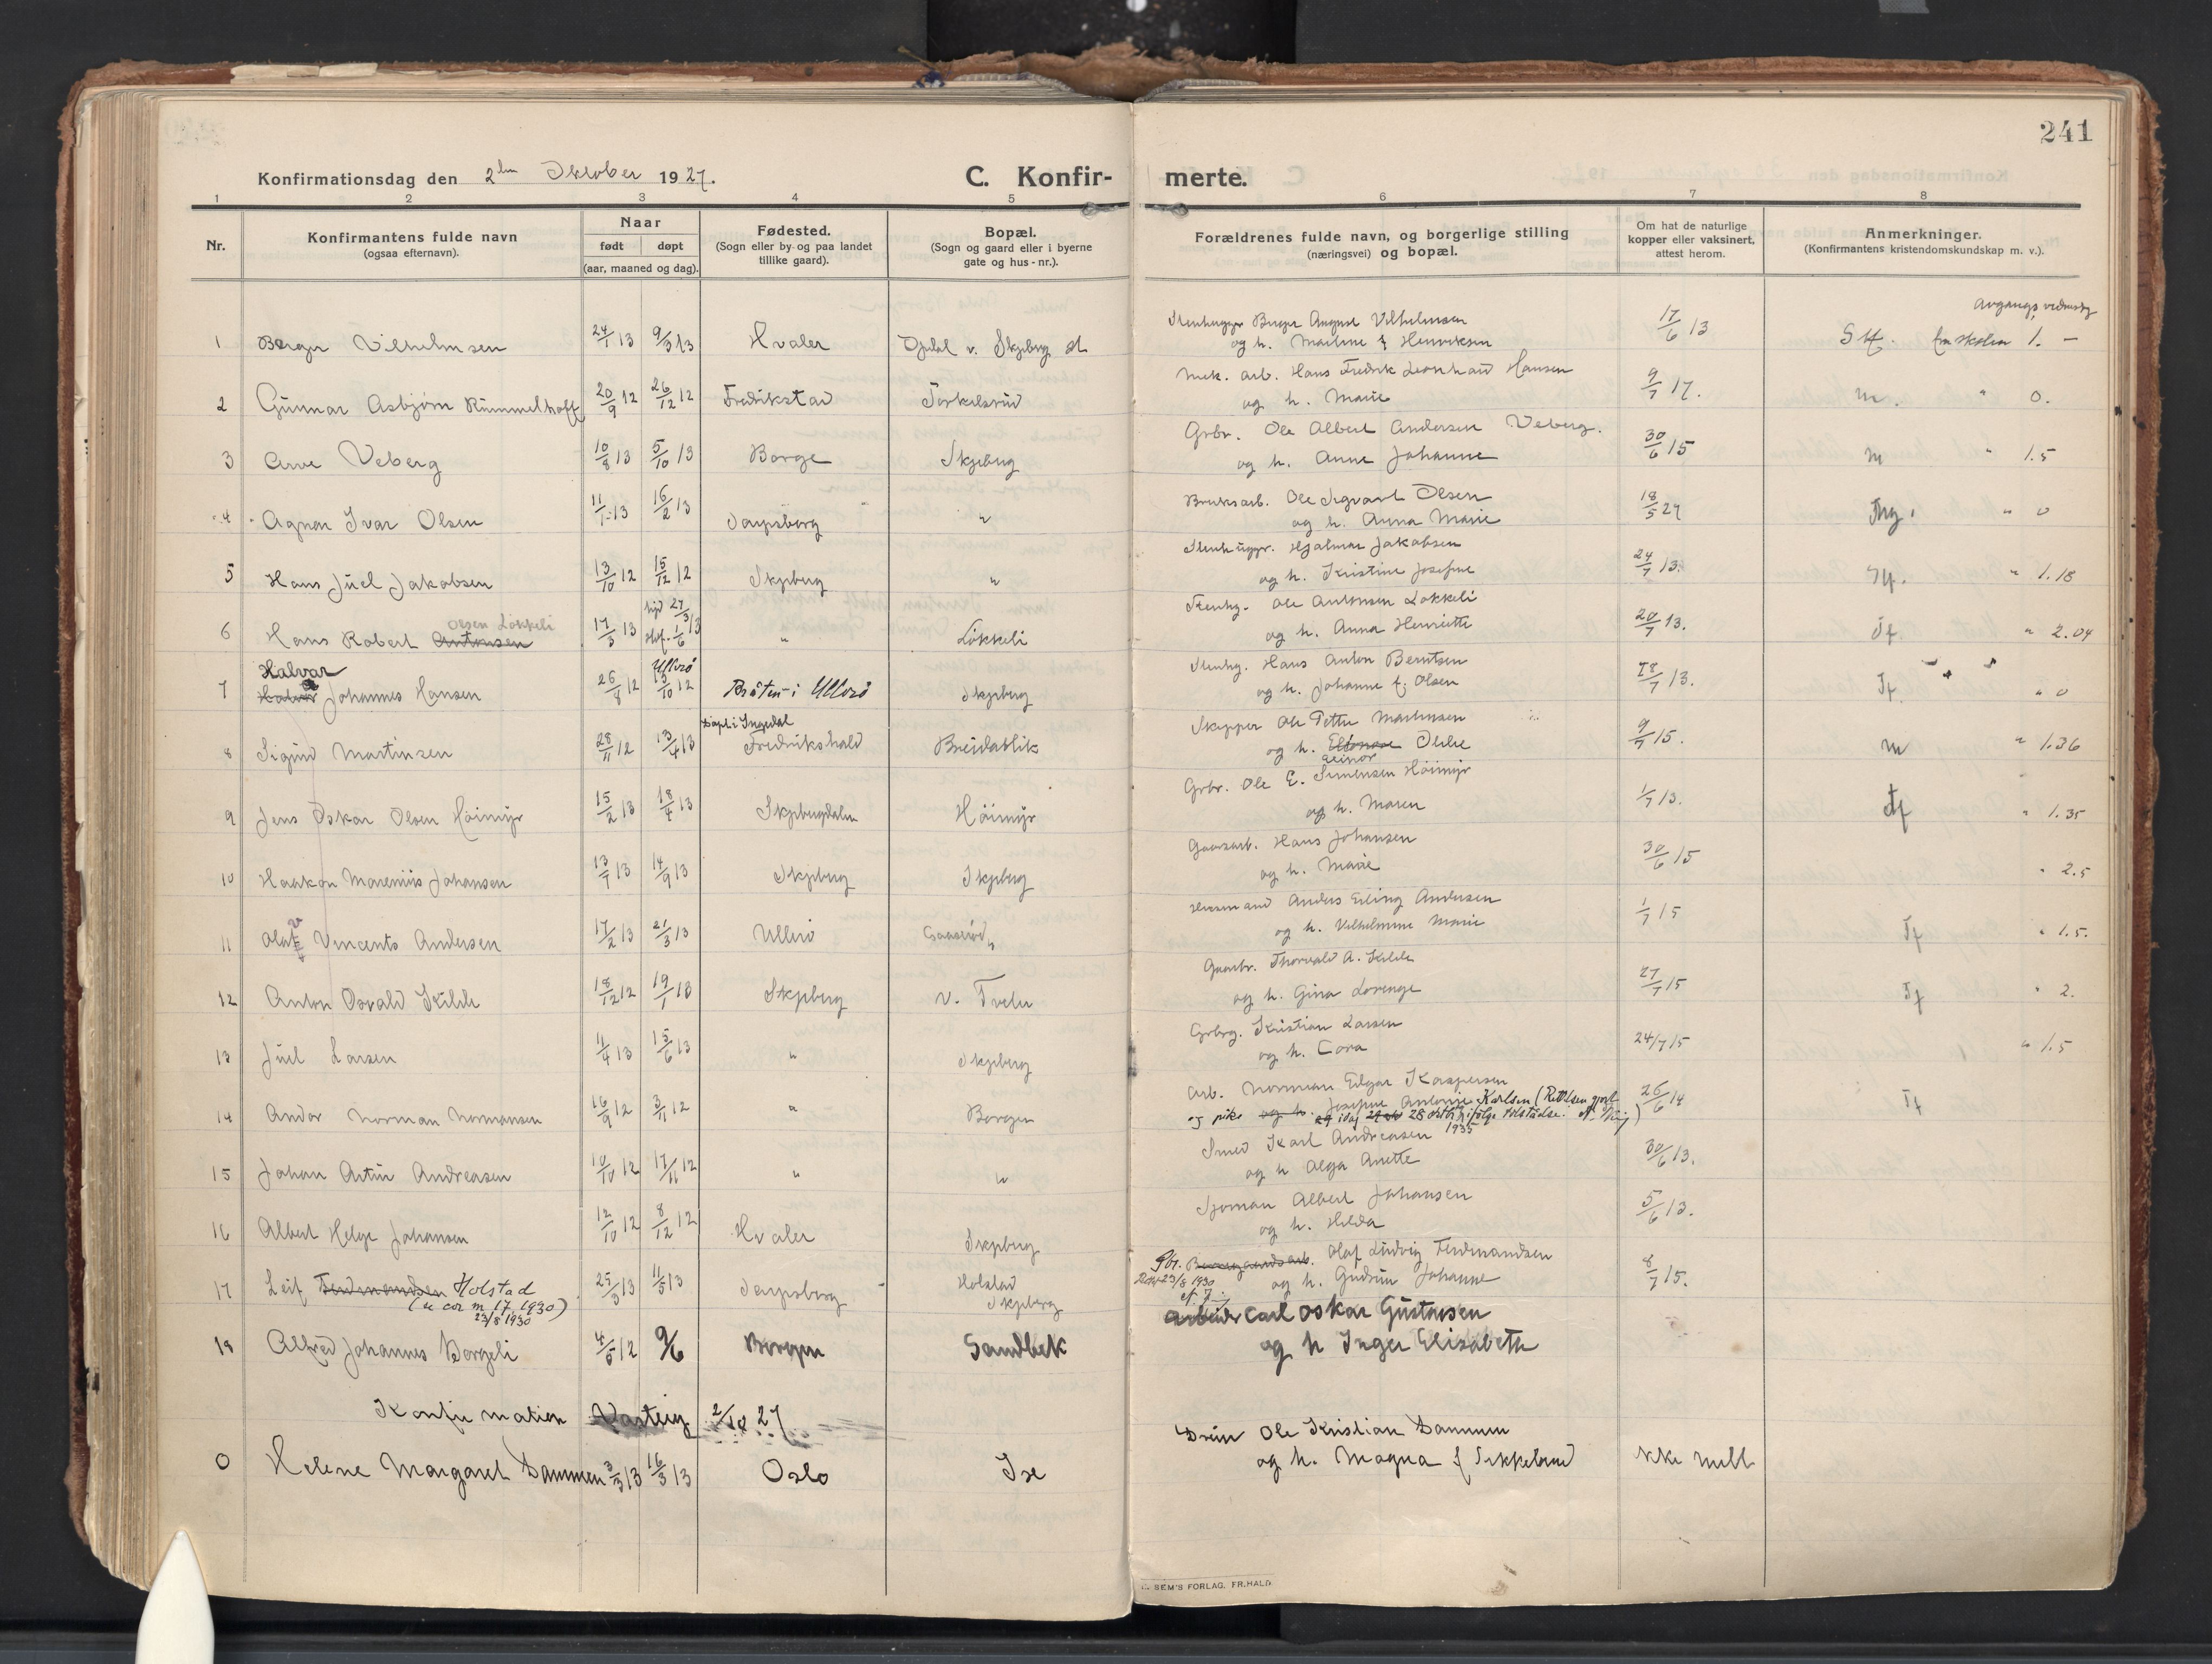 241
Konfirmationsdag den 2den Oktober 1927. C. Konfir- merte.
1 2 3 4 5 6 7 8
Nr. Konfirmantens fulde navn (ogsaa efternavn). Naar født døpt (aar, maaned og dag). Fødested. (Sogn eller by og paa landet tillike gaard). Bopæl. (Sogn og gaard eller i byerne gate og hus-nr.). Forældrenes fulde navn, og borgerlige stilling (næringsvei) og bopæl. Om hat de naturlige kopper eller vaksinert, attest herom. Anmerkninger. (Konfirmantens kristendomskundskap m. v.).
Avgangs
1 Birger Vilhelmsen 24/1 13 9/3 13 Hvaler v. Skjeberg st Stenhugger Birger August Vilhelmsen 17/6 13 fra skolen 1. —
og h. Mathine f Henriksen
2 Gunnar Asbjørn Rummelhoff 20/9 12 26/12 12 Fredrikstad Torkelsrud Mek. arb. Hans Fredrik Leonhard Hansen 9/7 17. m. " 0.
og h. Marie
3 Arve Veberg 10/8 13 5/10 13 Borge Skjeberg Grbr. Ole Albert Andersen Veberg. 30/6 15 m " 1.5
og h. Anne Johanne
4 Agnar Ivar Olsen 11/1 13 16/2 13 Sarpsborg " Bruksarb. Ole Sigvart Olsen 18/5 27 " 0
og h. Anna Marie
5 Hans Juel Jakobsen 13/10 12 15/12 12 Skjeberg " Stenhuggr. Hjalmar Jakobsen 24/7 13. " 1.18
og h. Kristine Josefine
Olsen Løkkeli hjd 27/3 13
6 Hans Robert Antonsen 17/3 13 1/6 " Løkkeli Stenhg. Ole Antonsen Løkkeli 20/7 13. Tf. " 2.04
og h. Anna Henriette
Halvar Ullerø
7 Johannes Hansen 26/8 12 13/10 12 Bråten i Ullerø Skjeberg Stenhg. Hans Anton Berntsen 28/7 13. Tf. " 0
og h. Johanne f. Olsen
Døpt i Ingedal
8 Sigurd Martinsen 28/11 12 13/4 13 Fredrikshald Breidablik Skipper Ole Petter Martinsen 9/7 15. m " 1.36
og h. Elionore Olilie
Elinor
9 Jens Oskar Olsen Høimyr 15/2 13 18/4 13 Skjebergdalen Høimyr Grbr. Ole E. Simensen Høimyr 1/7 13. Tf " 1.35
og h. Maren
10 Haakon Marenius Johansen 13/7 13 14/9 13 Skjeberg Skjeberg Gaardsarb. Hans Johansen 30/6 15 " 2.5
og h. Marie
v
11 Olaf Vincents Andersen 17/2 13 21/3 13 Ullerø Husmand Anders Erling Andersen 1/7 15 Tf " 1.5.
og h. Vilhelmine Marie
12 Anton Osvald Kilde 18/12 12 19/1 13 Skjeberg v. Tveter Gaardbr. Thorvald A. Kilde 27/7 15 Tf " 2.
og h. Gina Lovenge
13 Juel Larsen 11/4 13 15/6 13 " Skjeberg Grbrg. Kristian Larsen 24/7 15 " 1.5
og h. Cora
14 Andor Norman Normansen 16/9 12 3/11 12 " Borgen Arb. Norman Edgar Kaspersen 26/6 14 Tf
og pike og h. Josefine Antonie Karlsen (Rettelsen gjort
idag 28 oktbr. ifølge tillatelse.
1935
15 Johan Artur Andreasen 10/10 12 17/11 12 " " Smed Karl Andreasen 30/6 13.
og h Alga Anette
16 Albert Helge Johansen 12/10 12 8/12 12 Hvaler Skjeberg Sjøman Albert Johansen 5/6 13.
og h. Hilda
17 Leif Ferdinandsen Holstad 25/3 13 11/5 13 Sarpsborg Holstad Skjeberg Gbr. Olaf Ludvig Ferdinandsen 8/7 15.
(se cor m. 17, 1930) 23/8 1930 23/8 1930 og h. Gudrun Johanne
18 Alfred Johannes Borgeli 4/5 12 9/6 Borgen Sandbek Arbeider Carl Oskar Gustavsen
og h Inger Elisabeth
Konfirmation Varteig 2/10 27
0 Helene Margaret Dammen 3/3 13 16/3 13 Oslo Ise Ole Kristian Dammen
og h. Magna f Sikkeland ikke meldt
SEM'S FORLAG. FR.HALD